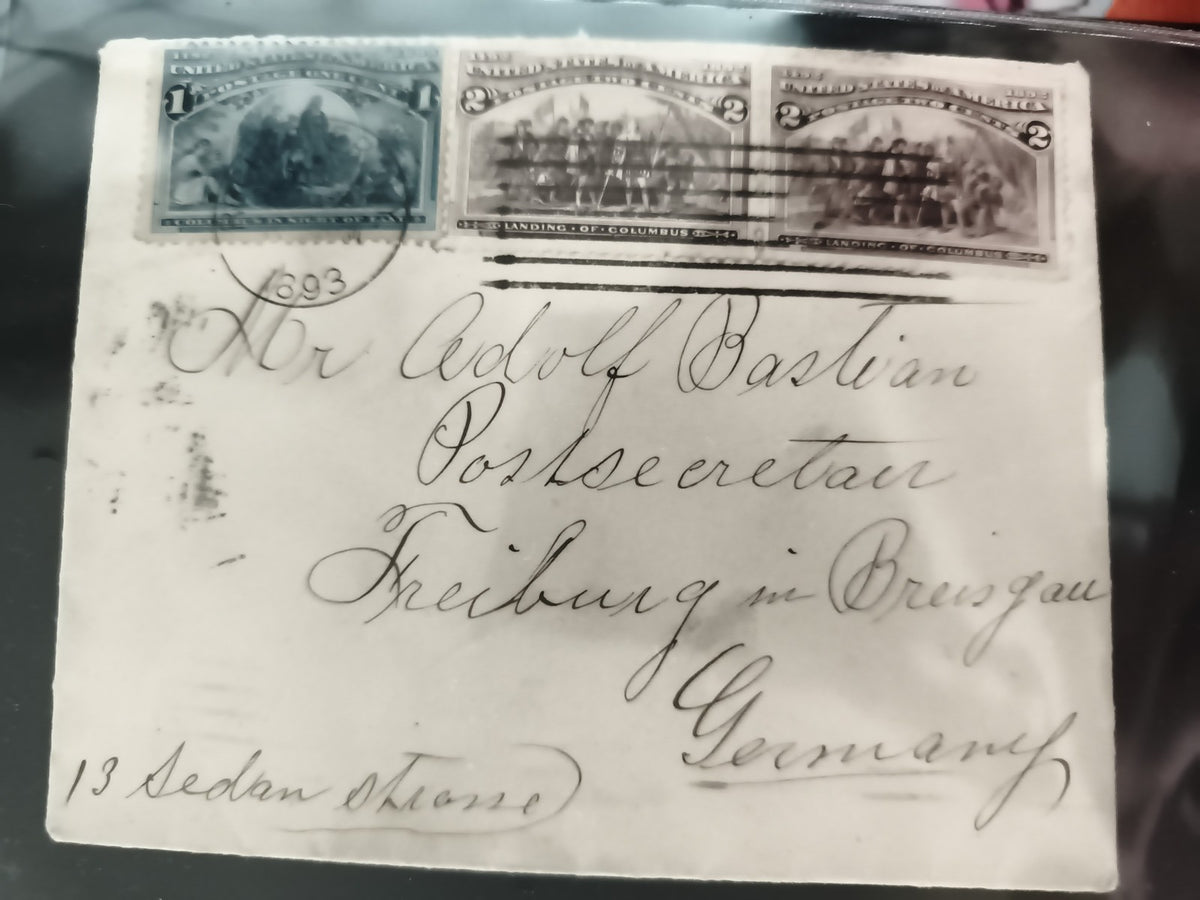 1 UNITED STATES OF AMERICA 1
COLUMBUS IN SIGHT OF LAND
1492 1892
UNITED STATES OF AMERICA
2 POSTAGE TWO CENTS 2
LANDING · OF · COLUMBUS
1492 1892
UNITED STATES OF AMERICA
2 POSTAGE TWO CENTS 2
LANDING · OF · COLUMBUS
1893
Mr Adolf Bastian
Postsecretair
Freiburg in Breisgau
Germany
13 Sedan strasse